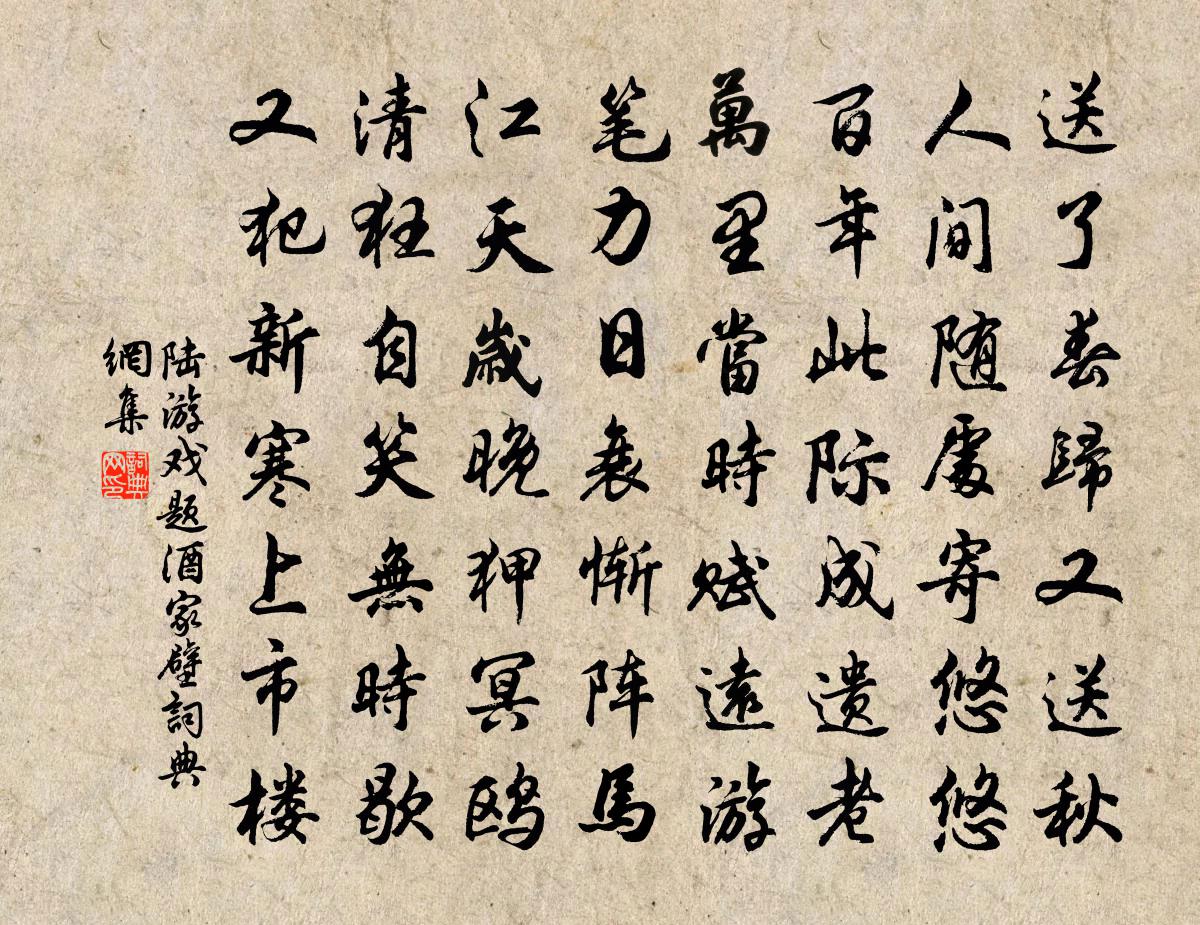 送了春歸又送秋
人间随處寄悠悠
百年此际成遗老
萬里當時赋遠游
笔力日衰惭阵馬
江天歲晚狎冥鸥
清狂自笑無時歇
又犯新寒上市楼
陆游戏题酒家壁詞典
網集
詞典
网印